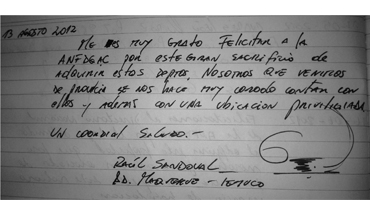 13 AGOSTO 2012
ME ES MUY GRATO FELICITAR A LA
ANFDGAC POR ESTE GRAN SACRIFICIO DE
ADQUIRIR ESTOS DEPTOS. NOSOTROS QUE VENIMOS
DE PROVINCIA SE NOS HACE MUY COMODO CONTAR CON
ELLOS Y ADEMAS CON UNA UBICACION PRIVILEGIADA.
UN CORDIAL SALUDO.-
RAÚL SANDOVAL
AD. MAQUEHUE - TEMUCO